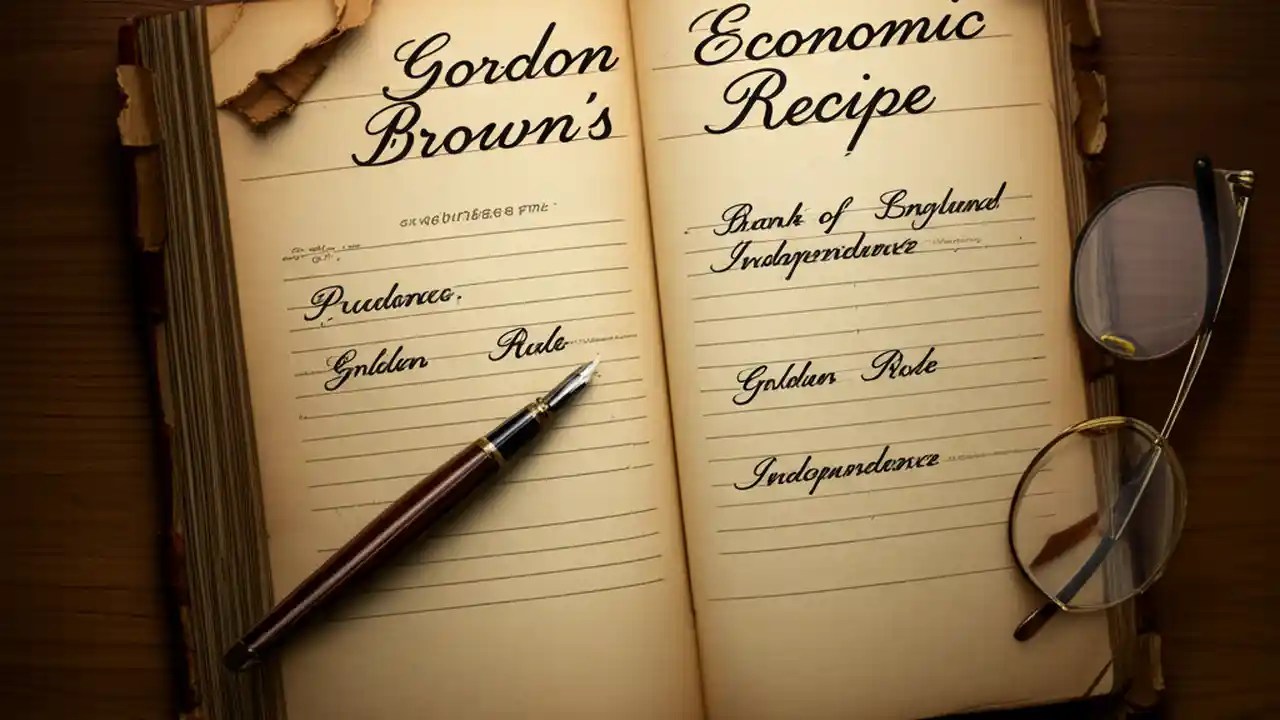 Gordon
Brown's
Prudence.
Golden Rule
Economic
Recipe
Bank of England
Independence
Golden Rule
Independence